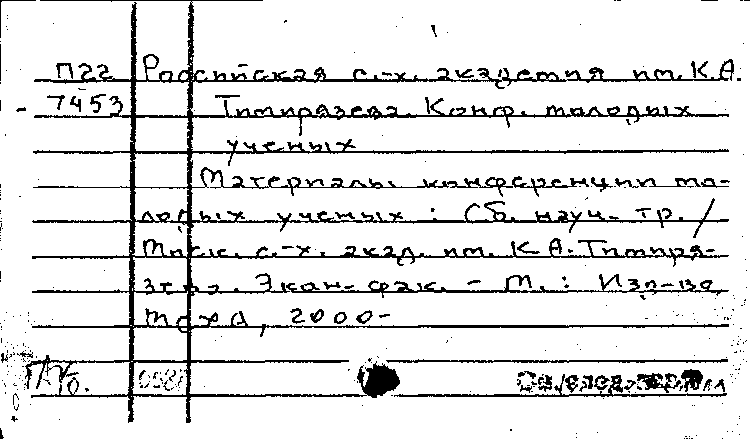 П22 Российская с.-х. академия им. К.А.
7453 Тимирязева. Конф. молодых
ученых
Материалы конференции мо-
лодых ученых : Сб. науч. тр. /
Моск. с.-х. акад. им. К.А. Тимиря-
зева. Экон. фак. - М. : Изд-во
МСХА, 2000-
См. след. карт.